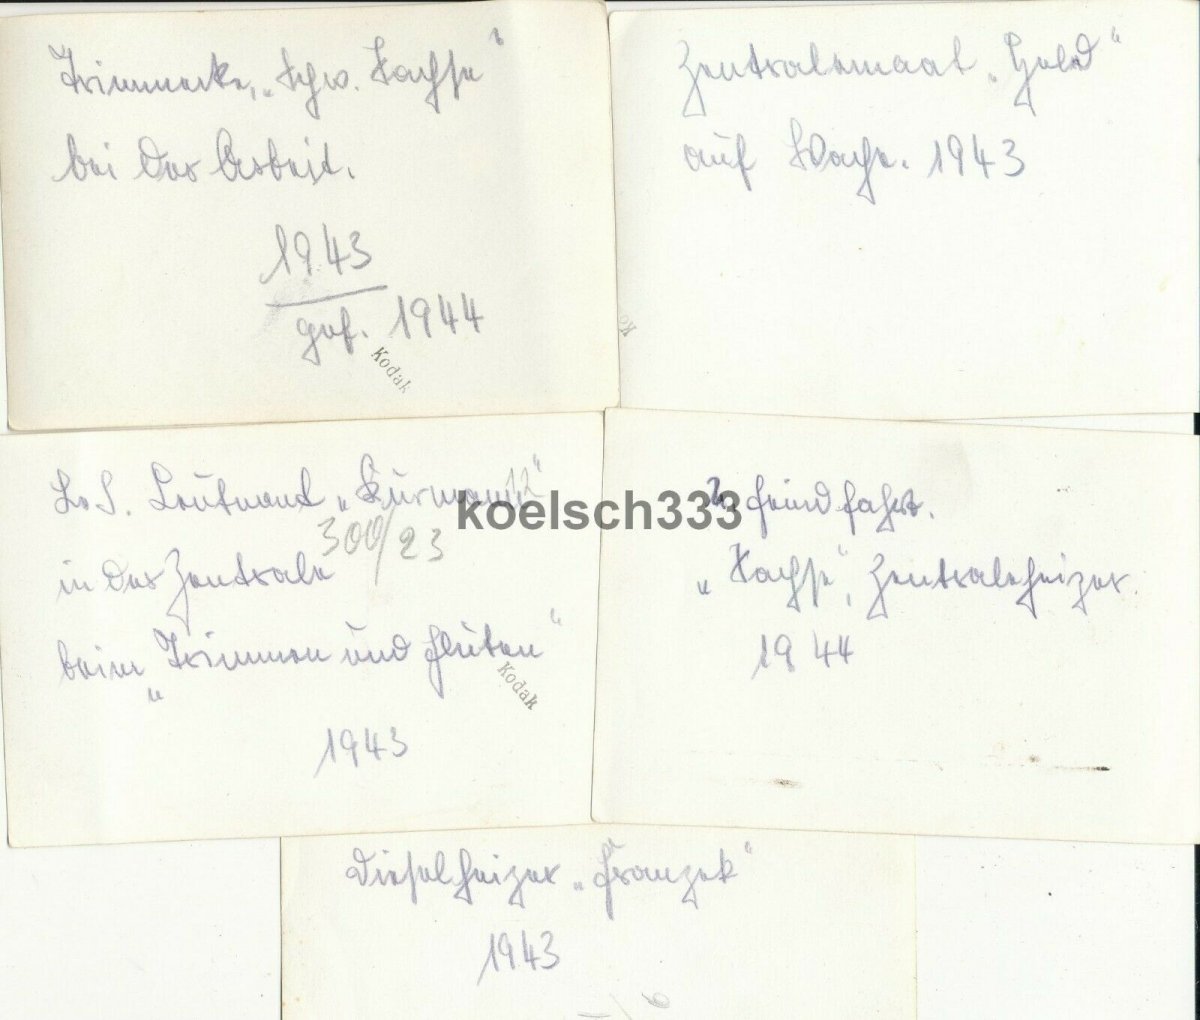 Trimmecke, „Schw. Sachse“
bei der Arbeit.
1943
gef. 1944
Kodak
Zentralemaat „Held“
auf Wache. 1943
Ko
Leutnant
300/23
in der Zentrale
beim „Trimmen und Fluten“
Kodak
1943
koelsch333
2. Feindfahrt.
„Sachse“, Zentraleheizer.
1944
Dieselheizer „Franzek“
1943